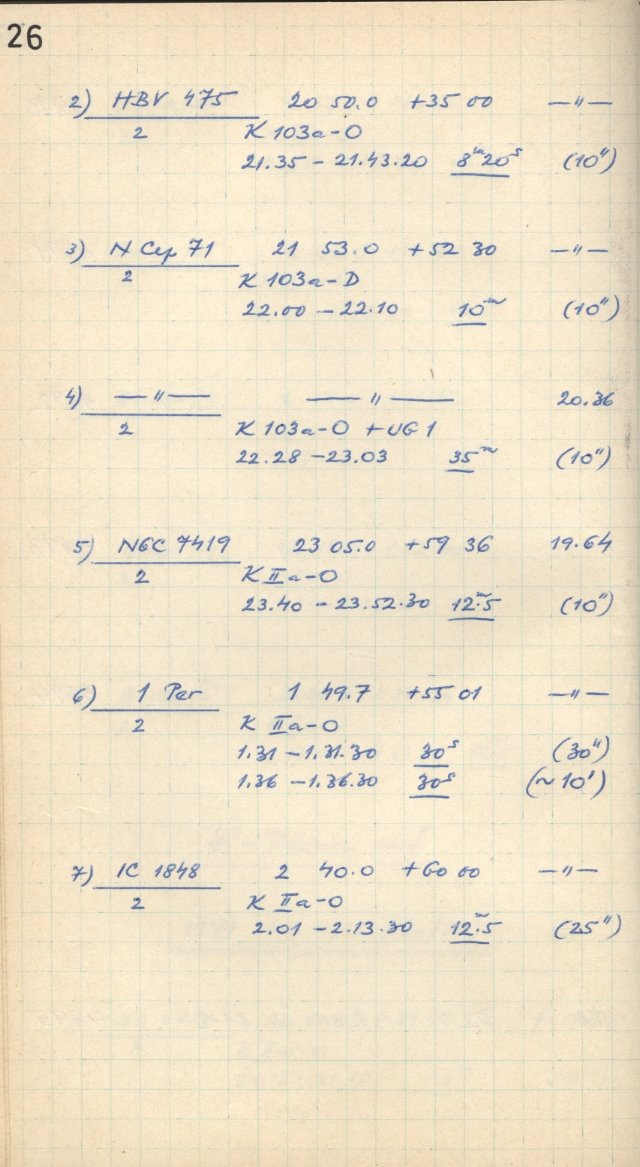 26
2) HBV 475 20 50.0 +35 00 —"—
2 K 103a-O
21.35 - 21.43.20 8ᵐ20ˢ (10")
3) N Cep 71 21 53.0 +52 30 —"—
2 K 103a-D
22.00 - 22.10 10ᵐ (10")
4) —"— —"— 20.36
2 K 103a-O + UG 1
22.28 - 23.03 35ᵐ (10")
5) NGC 7419 23 05.0 +59 36 19.64
2 K IIa-O
23.40 - 23.52.30 12ᵐ.5 (10")
6) 1 Per 1 49.7 +55 01 —"—
2 K IIa-O
1.31 - 1.31.30 30ˢ (30")
1.36 - 1.36.30 30ˢ (~10')
7) IC 1848 2 40.0 +60 00 —"—
2 K IIa-O
2.01 - 2.13.30 12ᵐ.5 (25")